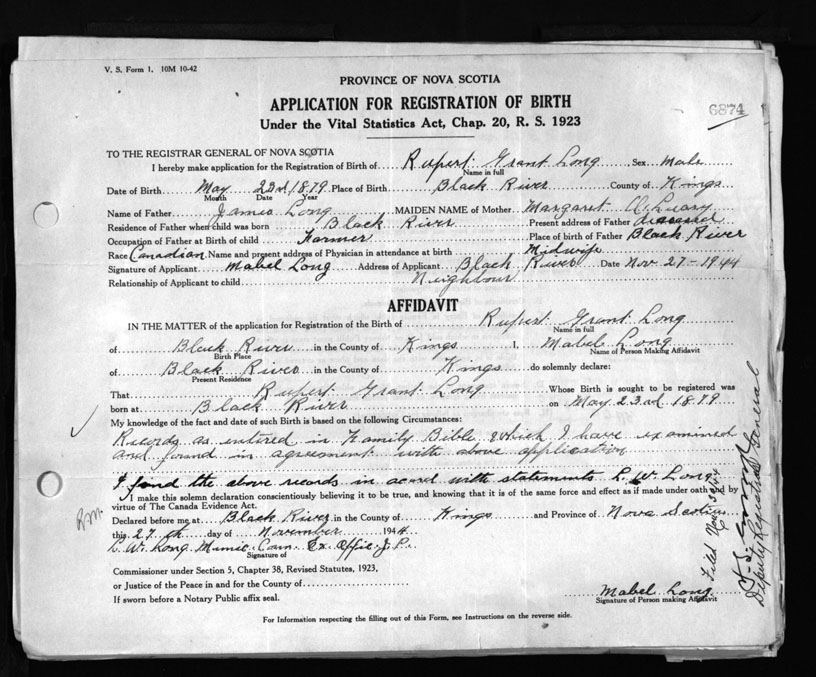 V. S. Form 1. 10M 10-42
PROVINCE OF NOVA SCOTIA
APPLICATION FOR REGISTRATION OF BIRTH
6874
Under the Vital Statistics Act, Chap. 20, R. S. 1923
TO THE REGISTRAR GENERAL OF NOVA SCOTIA
I hereby make application for the Registration of Birth of Rupert Grant Long Sex male
Name in full
Date of Birth May 23rd 1879 Place of Birth Black River County of Kings
Month Date Year
Name of Father James Long MAIDEN NAME of Mother Margaret
Residence of Father when child was born Black River Present address of Father deceased
Occupation of Father at Birth of child Farmer Place of birth of Father Black River
Race Canadian Name and present address of Physician in attendance at birth Midwife
Signature of Applicant Mabel Long Address of Applicant Black River Date Nov 27-1944
Relationship of Applicant to child Neighbour
AFFIDAVIT
IN THE MATTER of the application for Registration of the Birth of Rupert Grant Long
Name in full
of Black River in the County of Kings I, Mabel Long
Birth Place Name of Person Making Affidavit
of Black River in the County of Kings do solemnly declare:
Present Residence
That Rupert Grant Long Whose Birth is sought to be registered was
born at Black River on May 23rd 1879
My knowledge of the fact and date of such Birth is based on the following Circumstances:
Records as entered in Family Bible which I have examined
and found in agreement with above application
I find the above records in accord with statements L. W. Long
I make this solemn declaration conscientiously believing it to be true, and knowing that it is of the same force and effect as if made under oath and by
virtue of The Canada Evidence Act.
R.M.
Declared before me at Black River in the County of Kings and Province of Nova Scotia
this 27th day of November 1944
L. W. Long Munic. Coun. Ex Offic J. P.
Signature of
Commissioner under Section 5, Chapter 38, Revised Statutes, 1923,
or Justice of the Peace in and for the County of
Mabel Long
If sworn before a Notary Public affix seal.
Signature of Person making Affidavit
For Information respecting the filling out of this Form, see Instructions on the reverse side.
Filed Nov 30/44
Deputy Registrar General